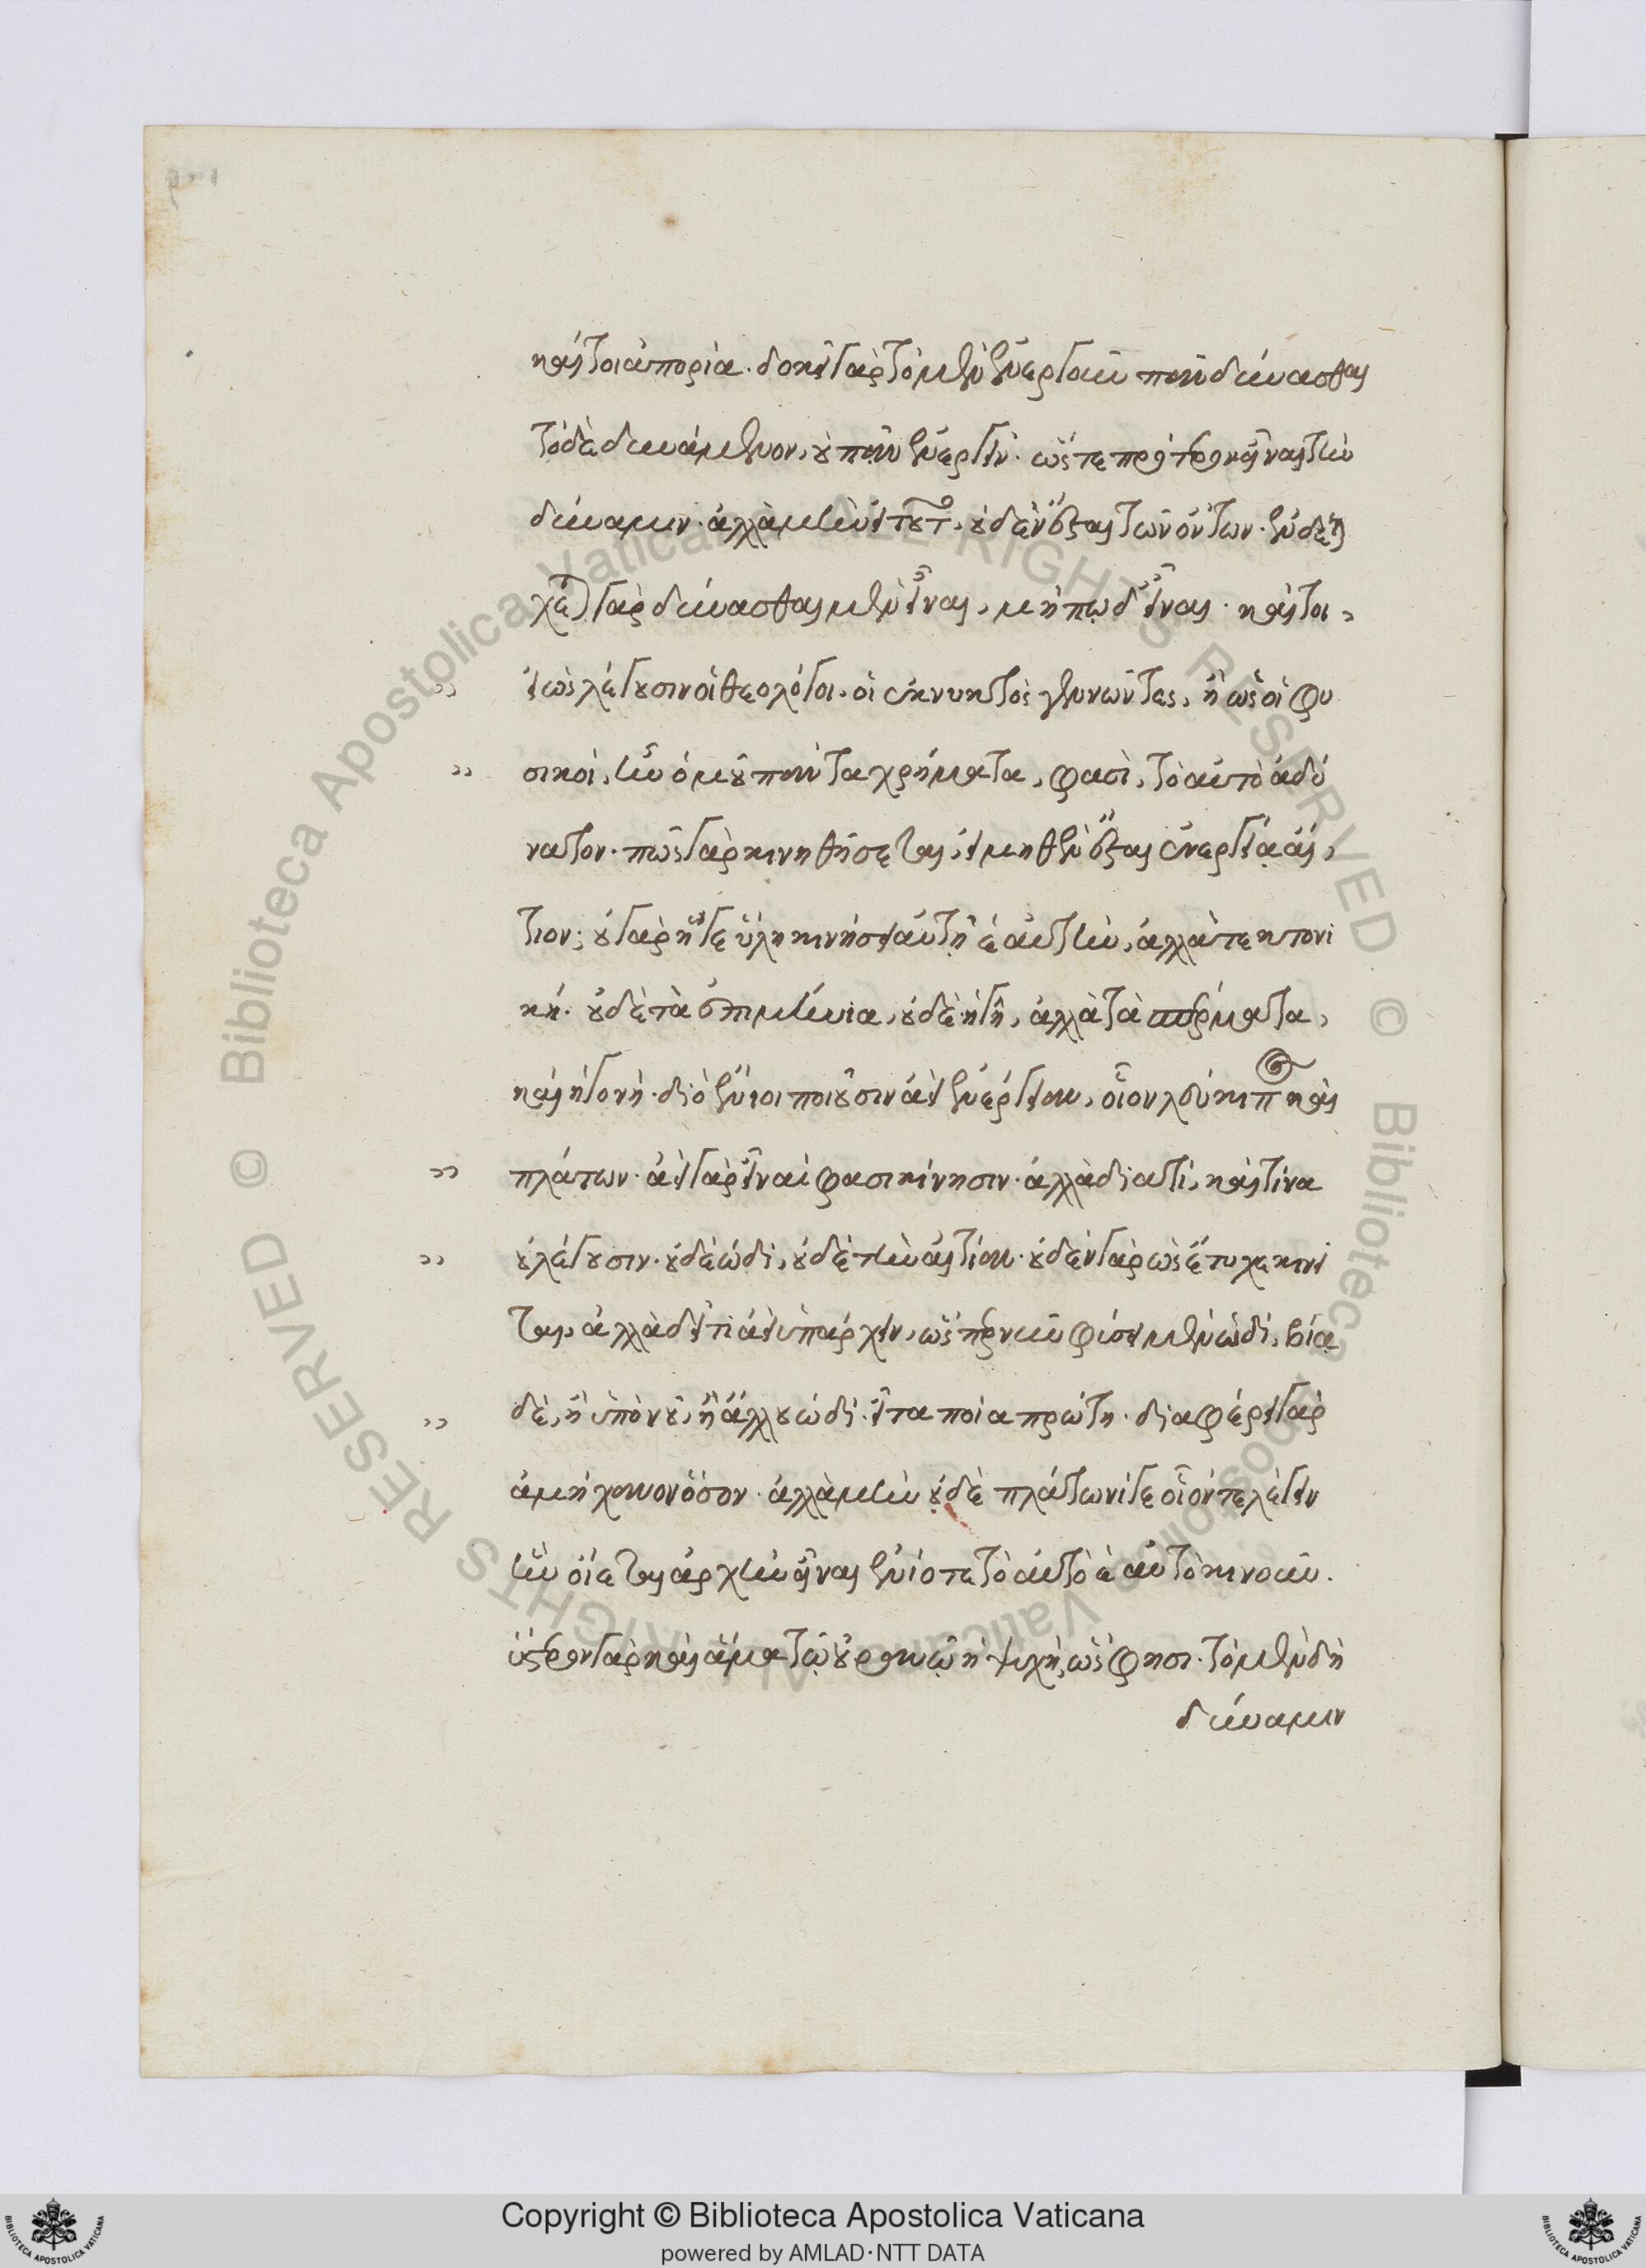 καίτοι ἀπορία. δοκεῖ γὰρ τὸ μὲν ἐνεργοῦν πᾶν δύνασθαι
τὸ δὲ δυνάμενον, οὐ πᾶν ἐνεργεῖν. ὥστε πρότερον εἶναι τὴν
δύναμιν. ἀλλὰ μὴν εἰ τοῦτο, οὐδὲν ἔσται τῶν ὄντων. ἐνδέ
χεται γὰρ δύνασθαι μὲν εἶναι, μήπω δ' εἶναι. καίτοι,
εἰ ὡς λέγουσιν οἱ θεολόγοι. οἱ ἐκ νυκτὸς γεννῶντες, ἢ ὡς οἱ φυ
σικοί, ἦν ὁμοῦ πάντα χρήματα, φασὶ, τὸ αὐτὸ ἀδύ
νατον. πῶς γὰρ κινηθήσεται, εἰ μηθὲν ἔσται ἐνεργείᾳ αἴ,
τιον; οὐ γὰρ ἥ γε ὕλη κινήσει αὐτὴ ἑαυτὴν, ἀλλὰ τεκτονι
κή. οὐδὲ τὰ ἐπιμήνια, οὐδὲ ἡ γῆ, ἀλλὰ τὰ σπέρματα,
καὶ ἡ γονή. διὸ ἔνιοι ποιοῦσιν ἀεὶ ἐνέργειαν, οἷον λεύκιππος καὶ
πλάτων. ἀεὶ γὰρ εἶναί φασι κίνησιν. ἀλλὰ διατί, καὶ τίνα
οὐ λέγουσιν. οὐδὲ ὡδί, οὐδὲ τὴν αἰτίαν. οὐδὲν γὰρ ὡς ἔτυχε κινεῖ
ται, ἀλλὰ δεῖ τι ἀεὶ ὑπάρχειν, ὥσπερ νῦν φύσει μὲν ὡδί, βίᾳ
δὲ, ἢ ὑπὸ νοῦ, ἢ ἄλλου ὡδί. εἶτα ποία πρώτη. διαφέρει γὰρ
ἀμήχανον ὅσον. ἀλλὰ μὴν οὐδὲ πλάτωνί γε οἷόν τε λέγειν
ἣν οἴεται ἀρχὴν εἶναι ἐνίοτε τὸ αὐτὸ ἑαυτὸ κινοῦν.
ὕστερον γὰρ καὶ ἅμα τῷ οὐρανῷ ἡ ψυχὴ, ὥς φησι. τὸ μὲν δὴ
δύναμιν